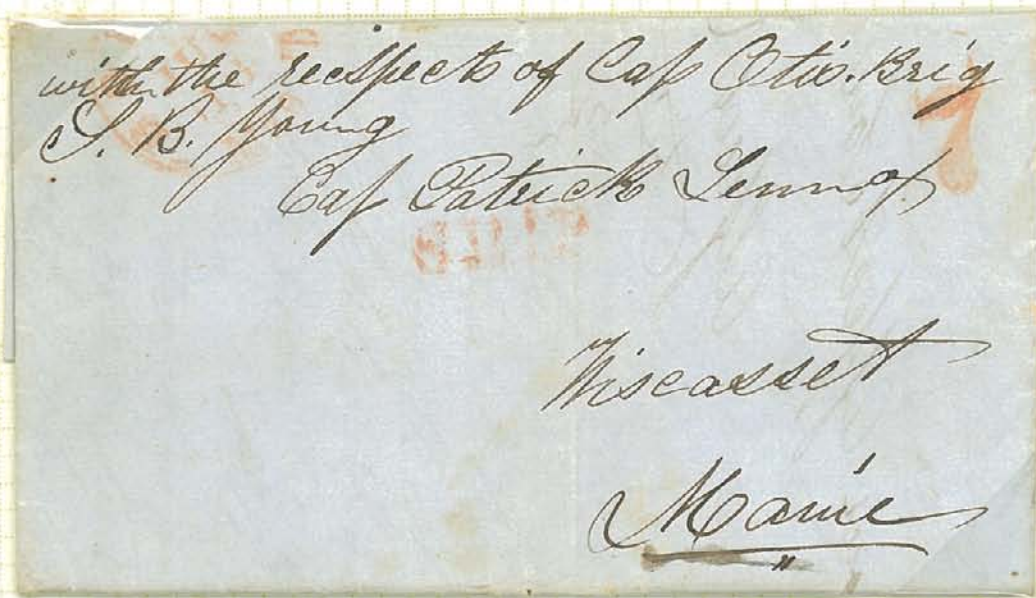 with the recspects of Cap Otis. Brig
7
S. B. Young
Cap Patrick Lennox
SHIP
Wiscasset
Maine